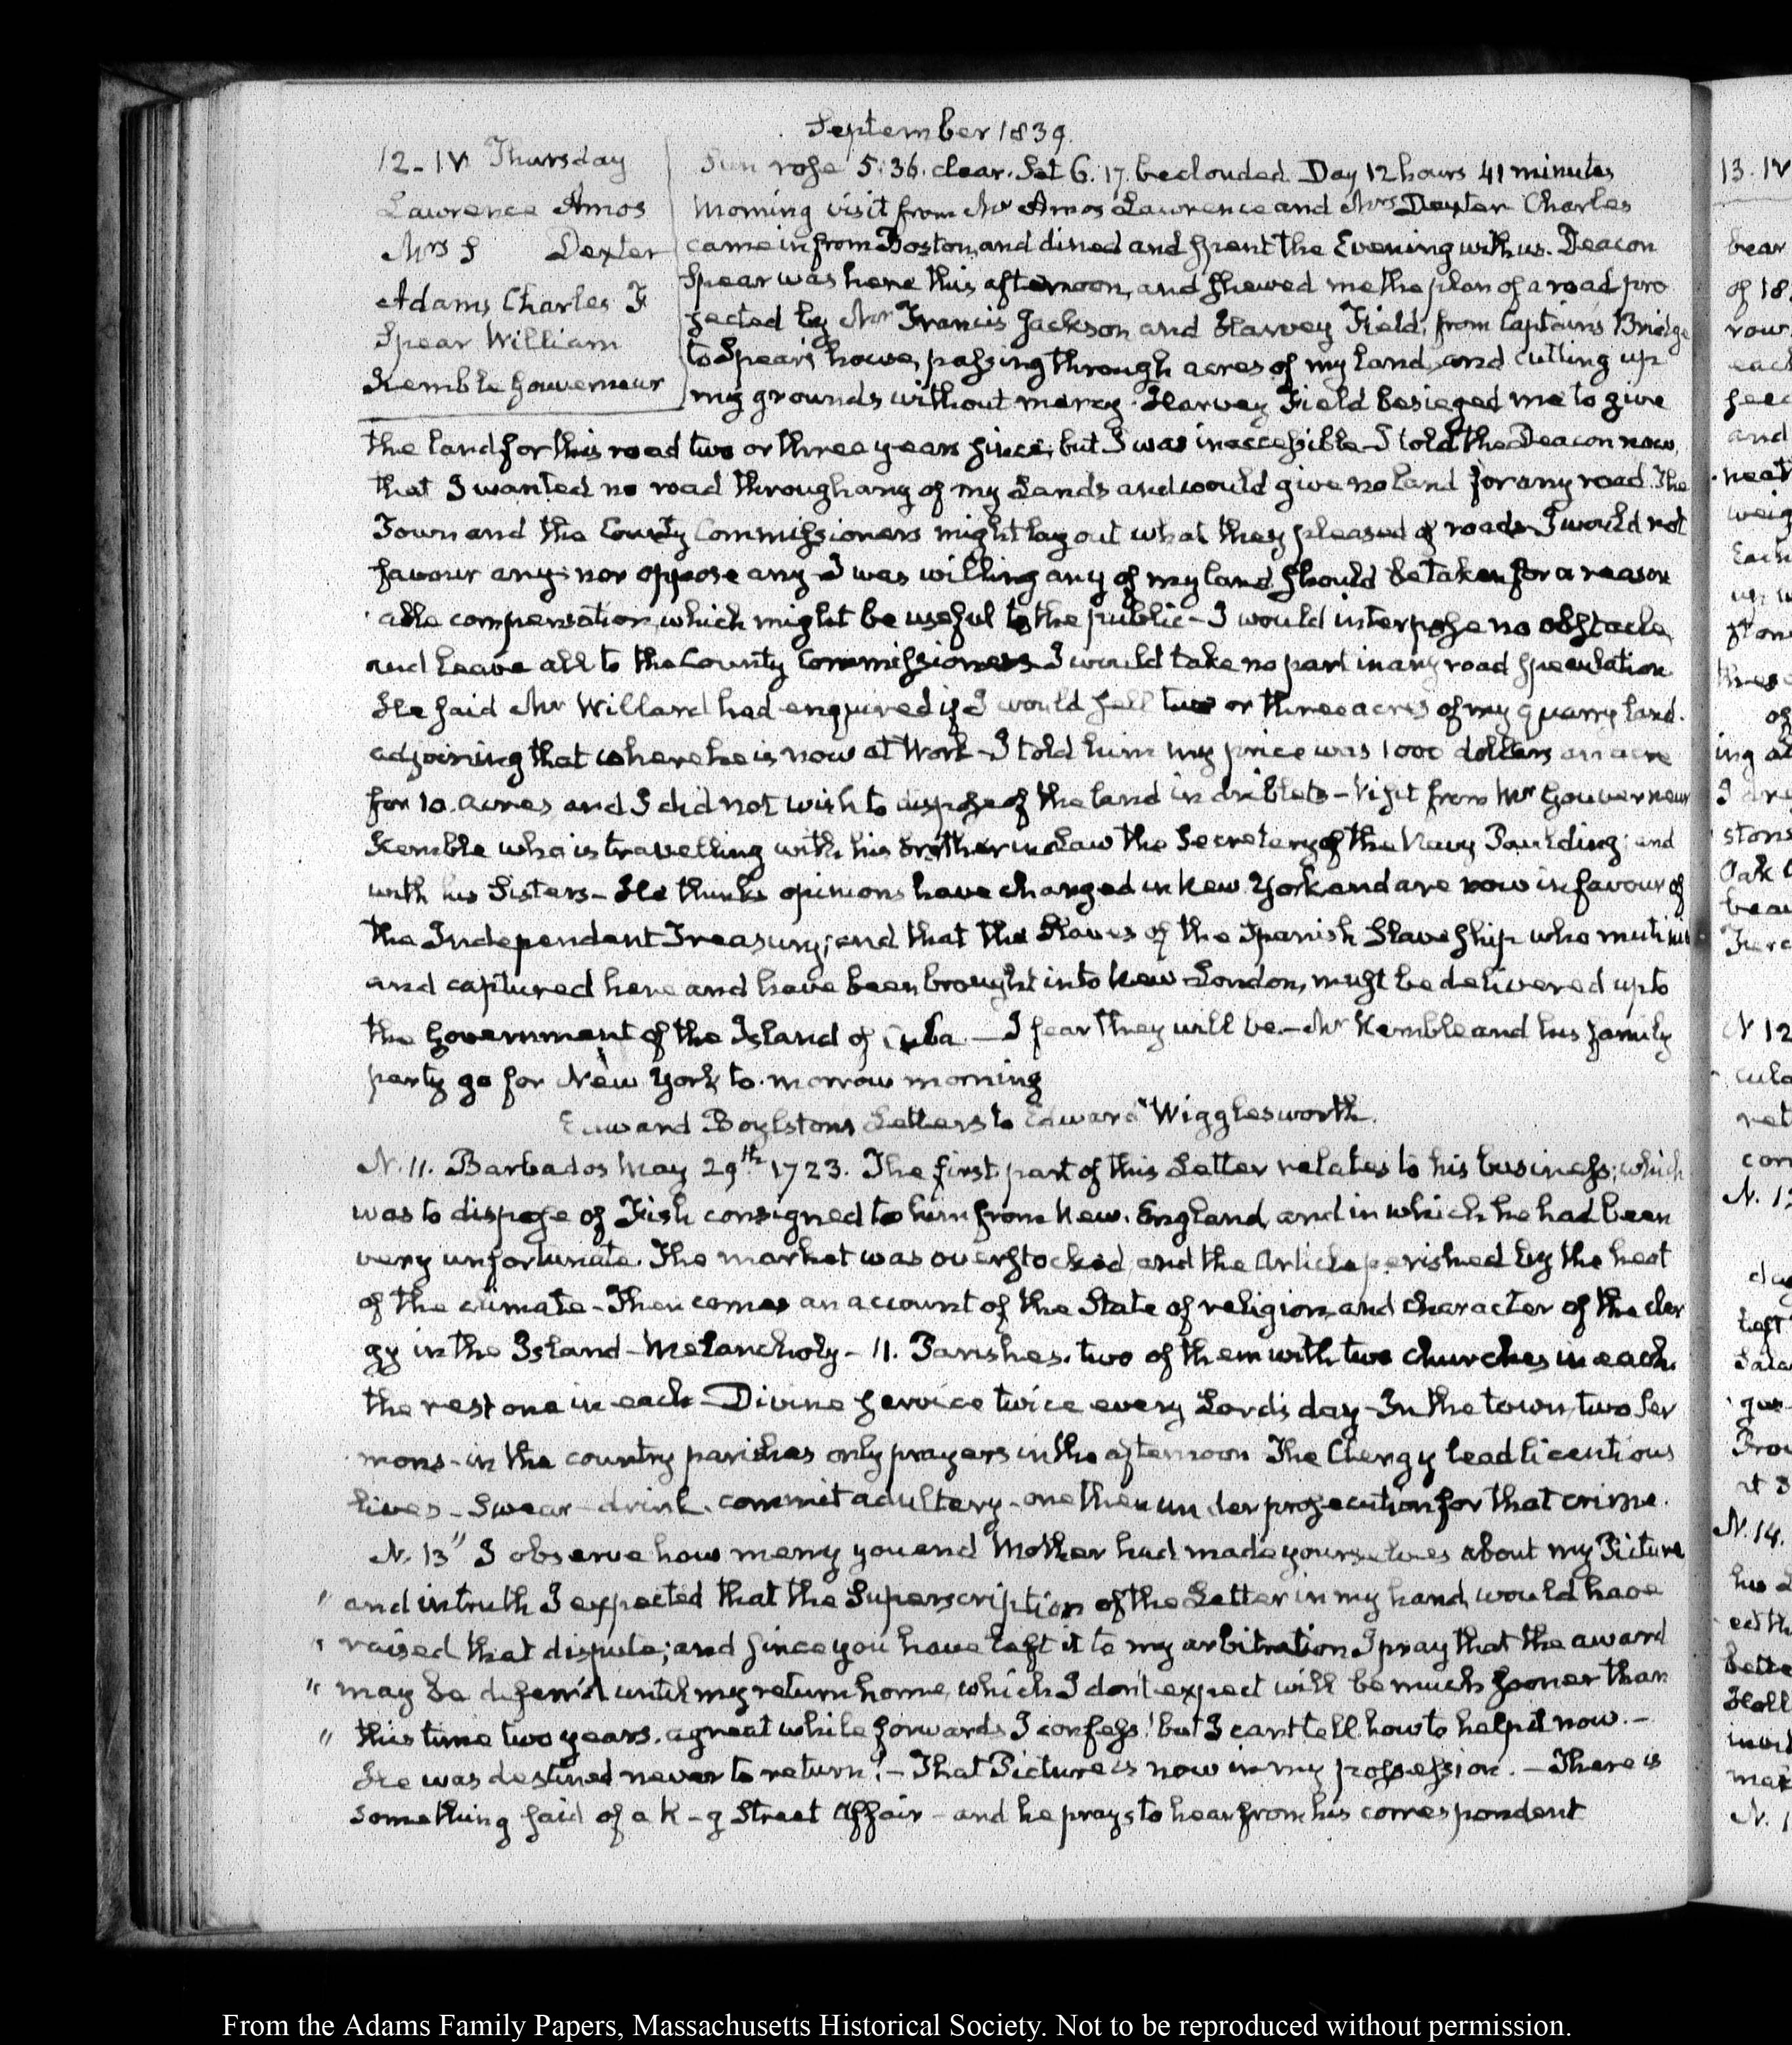 September 1839.
12-IV. Thursday
Lawrence Amos
Mrs S Dexter
Adams Charles F
Spear William
Kemble Gouverneur
Sun rose 5:36. clear. Set 6.17. beclouded. Day 12 hours 41 minutes
Morning visit from Mr Amos Lawrence and Mrs Dexter. Charles
came in from Boston, and dined and spent the Evening with us. Deacon
Spear was here this afternoon, and shewed me the plan of a road pro
jected by Mr Francis Jackson and Harvey Field, from Captains Bridge
to Spear's house, passing through acres of my land, and cutting up
my grounds without mercy. Harvey Field besieged me to give
the land for this road two or three years since; but I was inaccessible. I told the Deacon now
that I wanted no road through any of my Lands and would give no land for any road. The
Town and the County Commissioners might lay out what they pleased of roads I would not
favour any; nor oppose any. I was willing any of my land should be taken for a reason
able compensation, which might be useful to the public - I would interpose no obstacle
and leave all to the County Commissioners. I would take no part in any road speculation
He said Mr Willard had enquired if I would sell two or three acres of my quarry land.
adjoining that where he is now at Work - I told him my price was 1000 dollars an acre
for 10. acres, and I did not wish to dispose of the land in driblets - Visit from Mr Gouverneur
Kemble who is travelling with his brother in Law the Secretary of the Navy Paulding; and
with his Sisters - He thinks opinions have changed in New York and are now in favour of
the Independent Treasury; and that the Slaves of the Spanish Slave Ship who mutinied
and captured here and have been brought into New-London, must be delivered up to
the Government of the Island of Cuba. - I fear they will be. - Mr Kemble and his family
party go for New York to-morrow morning
Edward Boylston's Letters to Edward Wigglesworth.
N. 11. Barbados May 29th 1723. The first part of this Letter relates to his business; which
was to dispose of Fish consigned to him from New. England, and in which he had been
very unfortunate. The market was overstocked, and the Article perished by the heat
of the climate - Then comes an account of the State of religion, and character of the cler
gy in the Island - Melancholy - 11. Parishes. two of them with two churches in each.
the rest one in each - Divine service twice every Lord's day - In the town, two Ser
mons - in the country parishes only prayers in the afternoon. The Clergy lead licentious
lives - Swear - drink. commit adultery - one then under prosecution for that crime.
N. 13 " I observe how merry you and Mother had made yourselves about my Picture
" and in truth I expected that the Superscription of the Letter in my hand, would have
" raised that dispute; and since you have left it to my arbitration I pray that the award
" may be deferr'd until my return home, which I dont expect will be much sooner than
" this time two years. a great while forwards I confess! but I cant tell how to help it now. -
He was destined never to return! - That Picture is now in my possession. - There is
something said of a K - g Street Affair - and he prays to hear from his correspondent
13. IV
bear
of 18
row
each
feed
and
neat
weig
Each
ston
three
of
ing at
I dre
stone
Oak
bear
N 12
cula
ret
con
N. 13
left
N. 14.
his
ed th
bette
Holl
N. 1
From the Adams Family Papers, Massachusetts Historical Society. Not to be reproduced without permission.